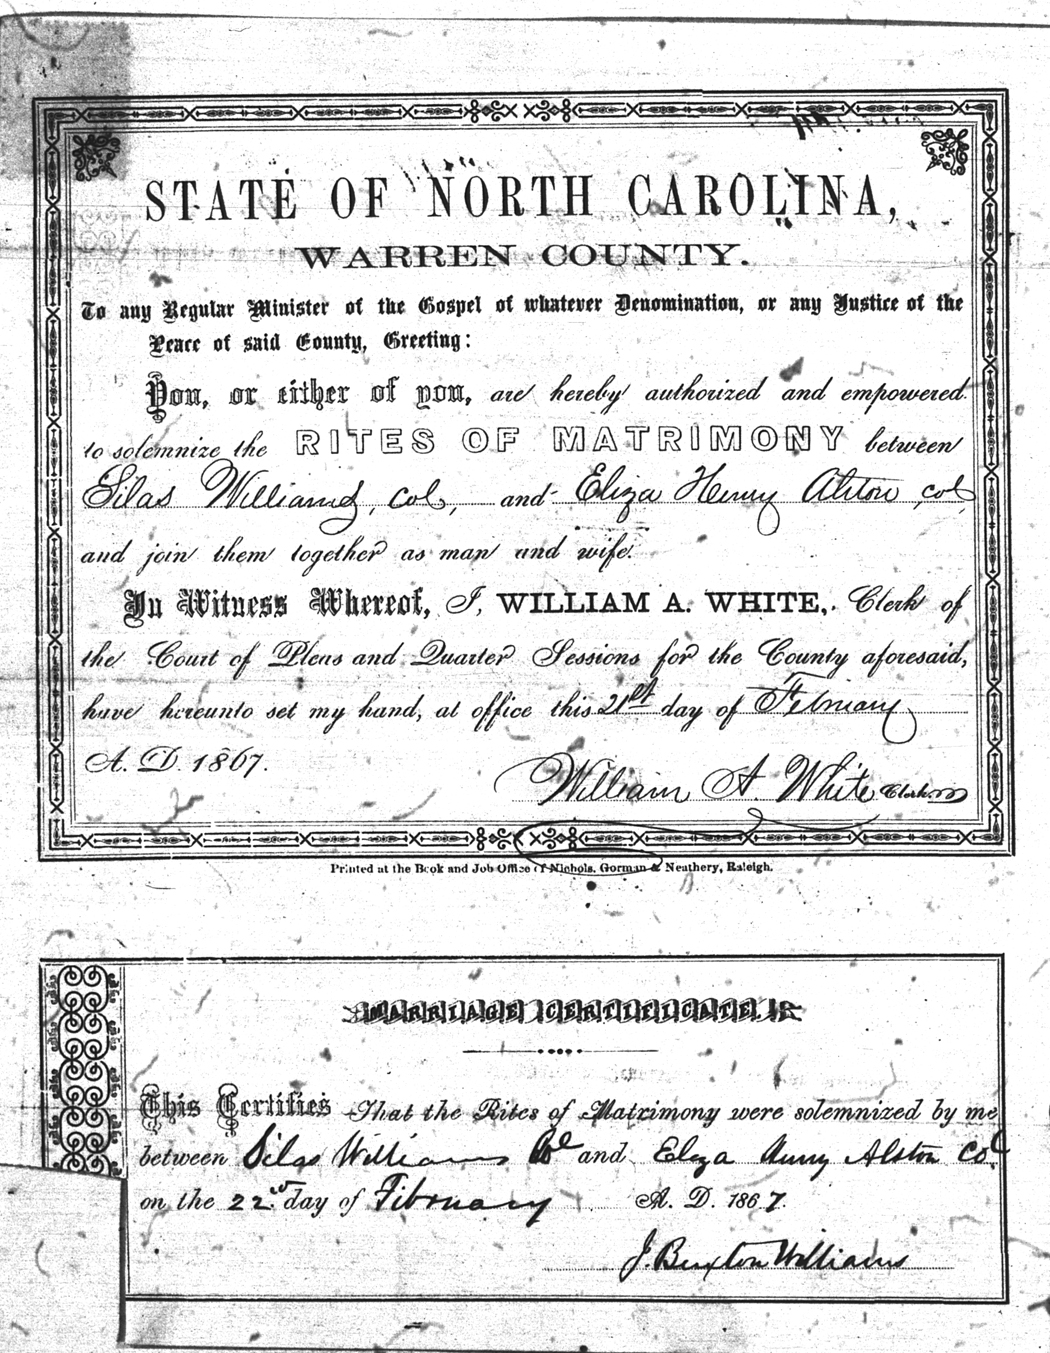 STATE OF NORTH CAROLINA,
WARREN COUNTY.
To any Regular Minister of the Gospel of whatever Denomination, or any Justice of the
Peace of said County, Greeting:
You, or either of you, are hereby authorized and empowered
to solemnize the RITES OF MATRIMONY between
Silas Williams, col, and Eliza Henry Alston, col
and join them together as man and wife.
In Witness Whereof, I, WILLIAM A. WHITE, Clerk of
the Court of Pleas and Quarter Sessions for the County aforesaid,
have hereunto set my hand, at office this 21st day of February
A. D. 1867.
William A White Clerk
Printed at the Book and Job Office of Nichols, Gorman & Neathery, Raleigh.
MARRIAGE CERTIFICATE.
This Certifies That the Rites of Matrimony were solemnized by me
between Silas Williams Col and Eliza Henry Alston Col.
on the 22nd day of Februuary A. D. 1867.
J. Buxton Williams